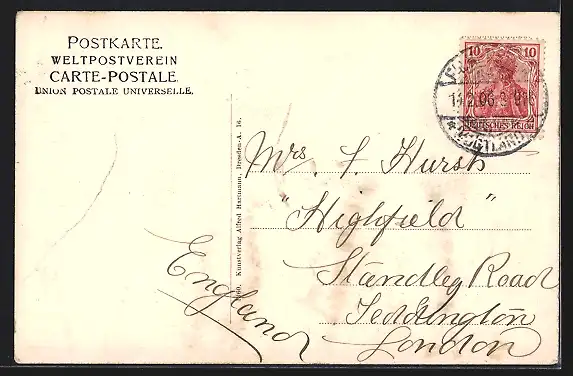 POSTKARTE.
WELTPOSTVEREIN
CARTE-POSTALE.
UNION POSTALE UNIVERSELLE.
10 10
DEUTSCHES REICH
VOGTLAND
Kunstverlag Alfred Hartmann, Dresden-A. 16.
Mrs. J. Hursh
"Highfield"
Standley Road
Teddington
London
England